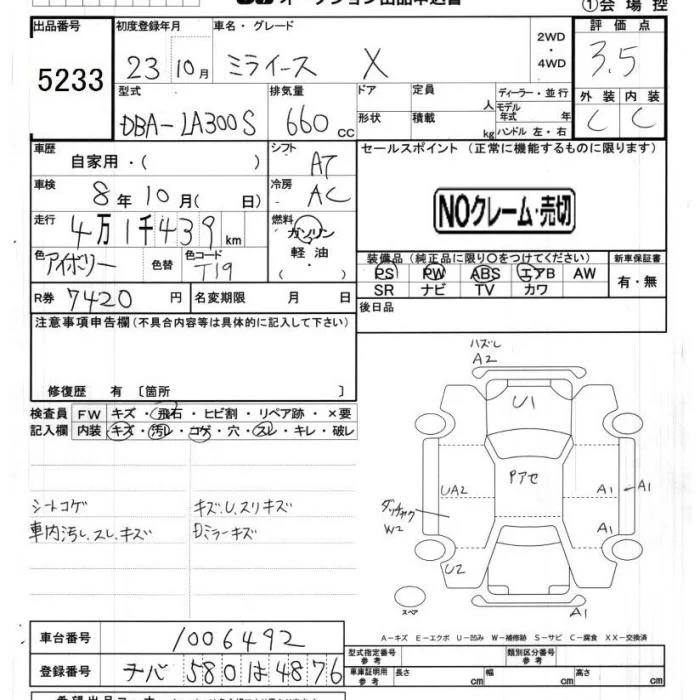 ①会場控
出品番号
初度登録年月
車名・グレード
2WD
・
4WD
評価点
5233
23年10月
ミライース X
3.5
型式
排気量
ドア
定員
人
ディーラー・並行
モデル年式 年
外装
内装
DBA-LA300S
660cc
形状
積載
kg
ハンドル 左・右
C
C
車歴
自家用・( )
シフト
AT
セールスポイント (正常に機能するものに限ります)
車検
8年10月( 日)
冷房
AC
NOクレーム・売切
走行
4万1千439km
燃料
ガソリン
軽油
( )
色
アイボリー
色替
色コード
T19
装備品 (純正品に限り○をつけてください)
新車保証書
PS PW ABS エアB AW
有・無
SR ナビ TV カワ
R券 7420円
名変期限 月 日
後日品
注意事項申告欄 (不具合内容等は具体的に記入して下さい)
修復歴 有〔箇所 〕
検査員
記入欄
FW キズ・飛石・ヒビ割・リペア跡・×要
内装 キズ・汚レ・コゲ・穴・スレ・キレ・破レ
ハズレ
A2
U1
Pアセ
UA2
A1
A1
ダッチャク
W2
A1
U2
A1
スペア
シートコゲ
キズ.U.スリキズ
車内汚レ.スレ.キズ
Dミラーキズ
A-キズ E-エクボ U-凹み W-補修跡 S-サビ C-腐食 XX-交換済
車台番号
1006492
型式指定番号
参考
類別区分番号
参考
登録番号
チバ 580 は 4876
車庫証明用
参考
長さ cm
幅 cm
高さ cm